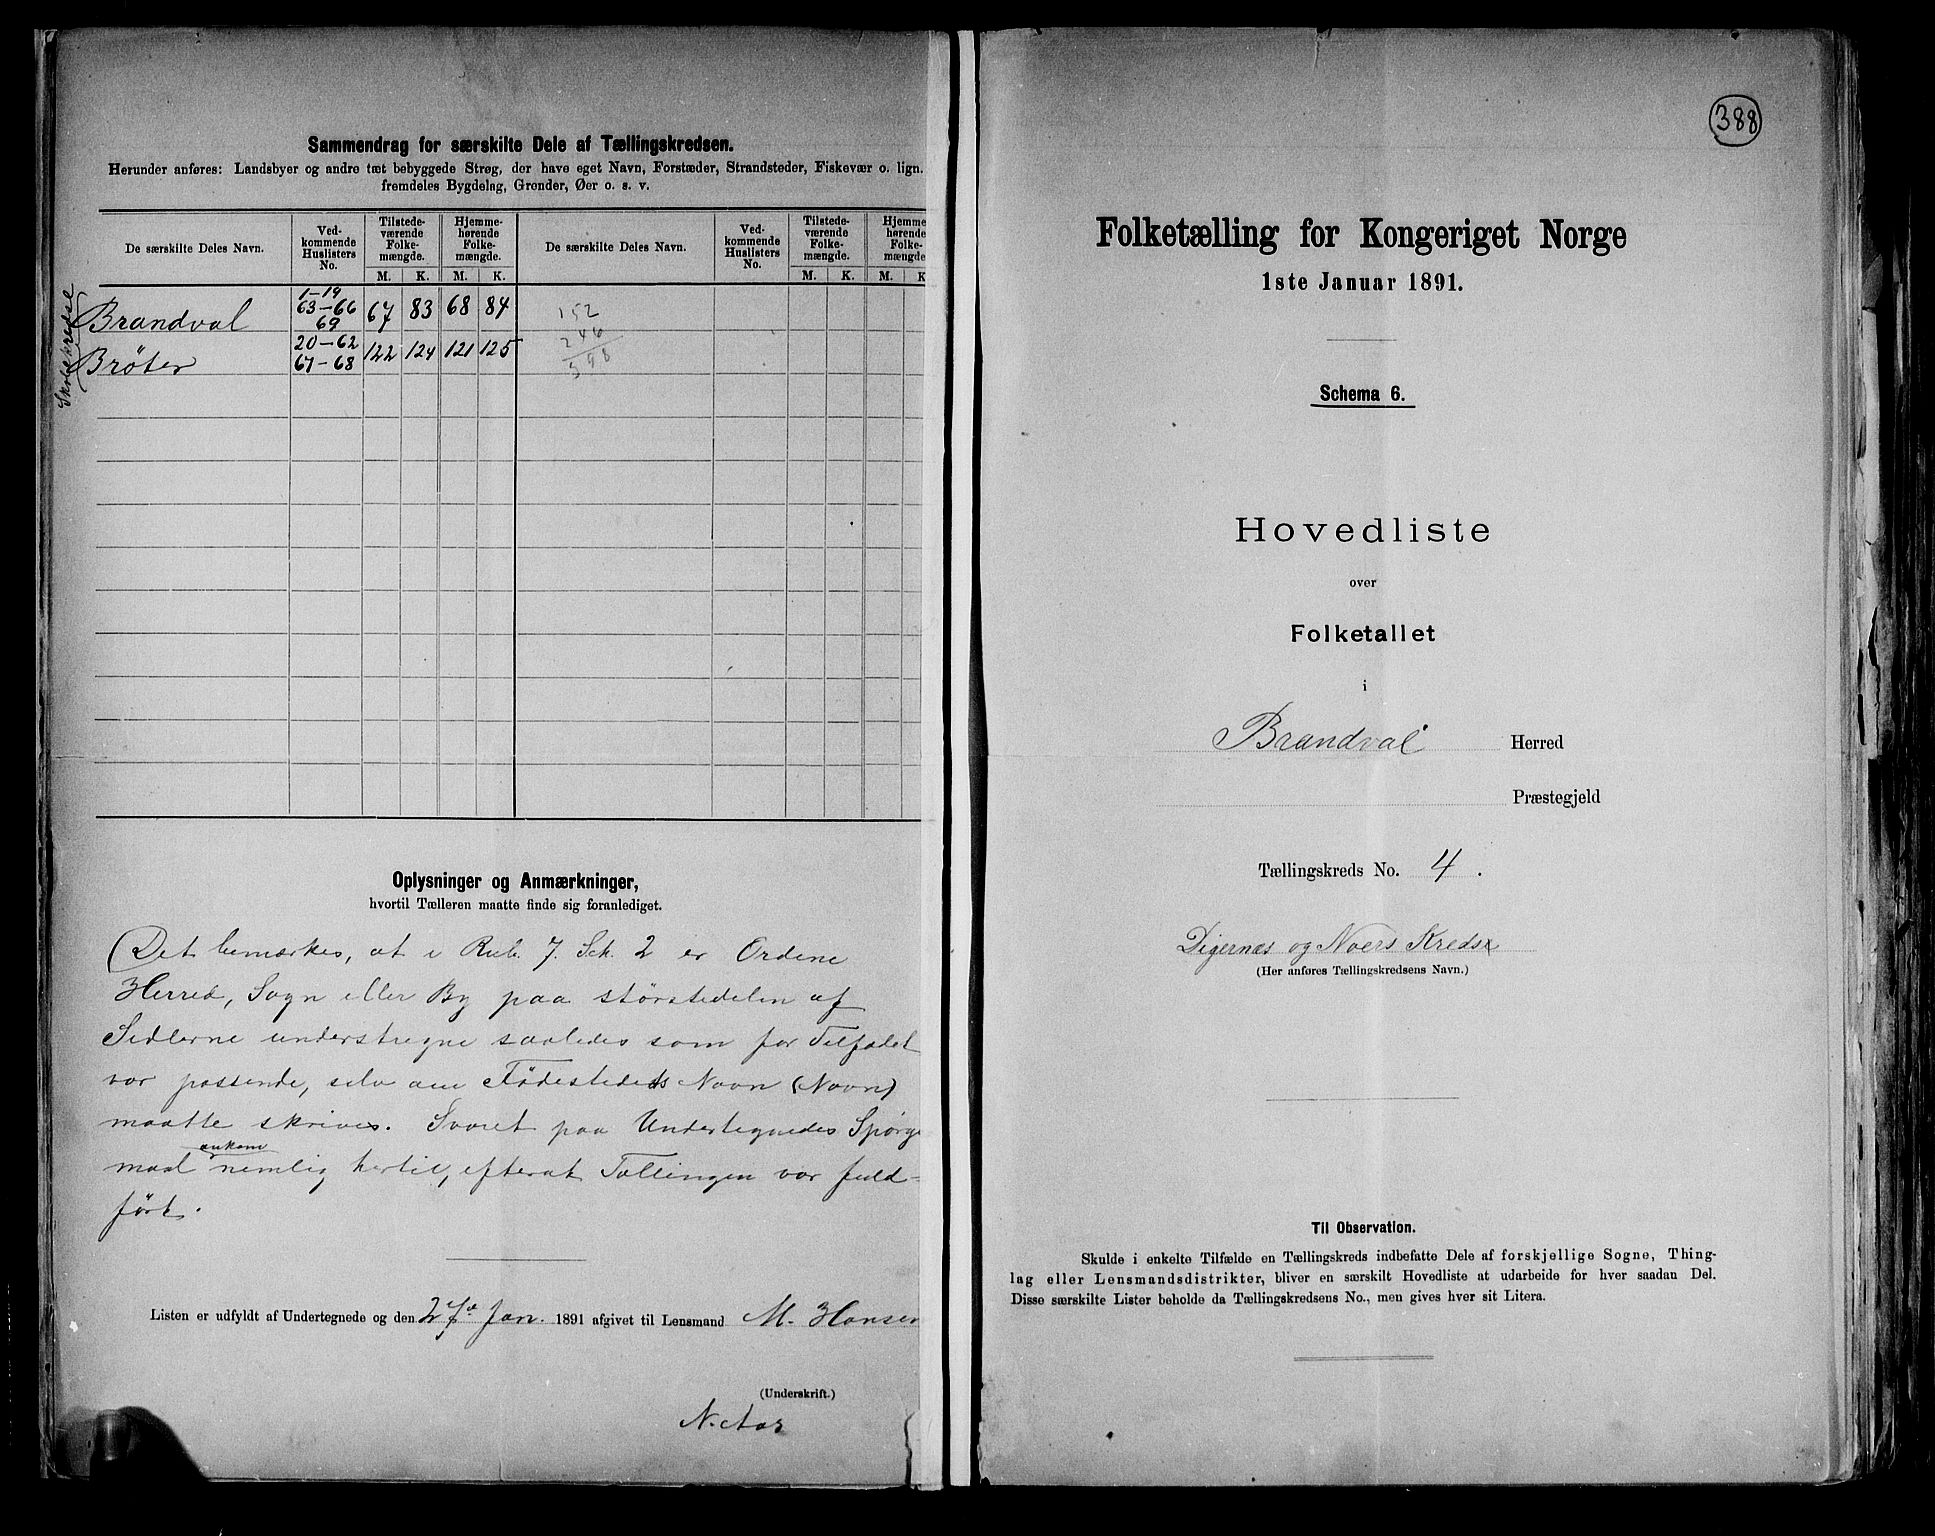 Sammendrag for særskilte Dele af Tællingskredsen.
Herunder anføres: Landsbyer og andre tæt bebyggede Strøg, der have eget Navn, Forstæder, Strandsteder, Fiskevær o. lign.
fremdeles Bygdelag, Grender, Øer o. s. v.
De særskilte Deles Navn. Ved-kommende Huslisters No. Tilstede-værende Folke-mængde. Hjemme-hørende Folke-mængde. De særskilte Deles Navn. Ved-kommende Huslisters No. Tilstede-værende Folke-mængde. Hjemme-hørende Folke-mængde.
M. K. M. K. M. K. M. K
Skolekredse
Brandval 1-19 63-66 69 67 83 68 84 152
Brøter 20-62 67-68 122 124 121 125 246
398
Oplysninger og Anmærkninger,
hvortil Tælleren maatte finde sig foranlediget.
Det bemærkes, at i Rub. 7. Sch. 2 er Ordene
Herred, Sogn eller By paa størstedelen af
Sedlerne understregne saaledes som for Tilfælet
var passende, selv om Fødestedets Navn (Navn)
maatte skrives. Svaret paa Undertegnedes Spørgs
maal ankom nemlig hertil, efterat Tællingen var fuld-
ført.
Listen er udfyldt af Undertegnede og den 27de Jan. 1891 afgivet til Lensmand M. Hansen
(Underskrift.)
N. Aas
388
Folketælling for Kongeriget Norge
1ste Januar 1891.
Schema 6.
Hovedliste
over
Folketallet
i
Brandval Herred
Præstegjeld
Tællingskreds No. 4.
Digernæs og Noers Kreds
(Her anføres Tællingskredsens Navn.)
Til Observation.
Skulde i enkelte Tilfælde en Tællingskreds indbefatte Dele af forskjellige Sogne, Thing-
lag eller Lensmandsdistrikter, bliver en særskilt Hovedliste at udarbeide for hver saadan Del.
Disse særskilte Lister beholde da Tællingskredsens No., men gives hver sit Litera.